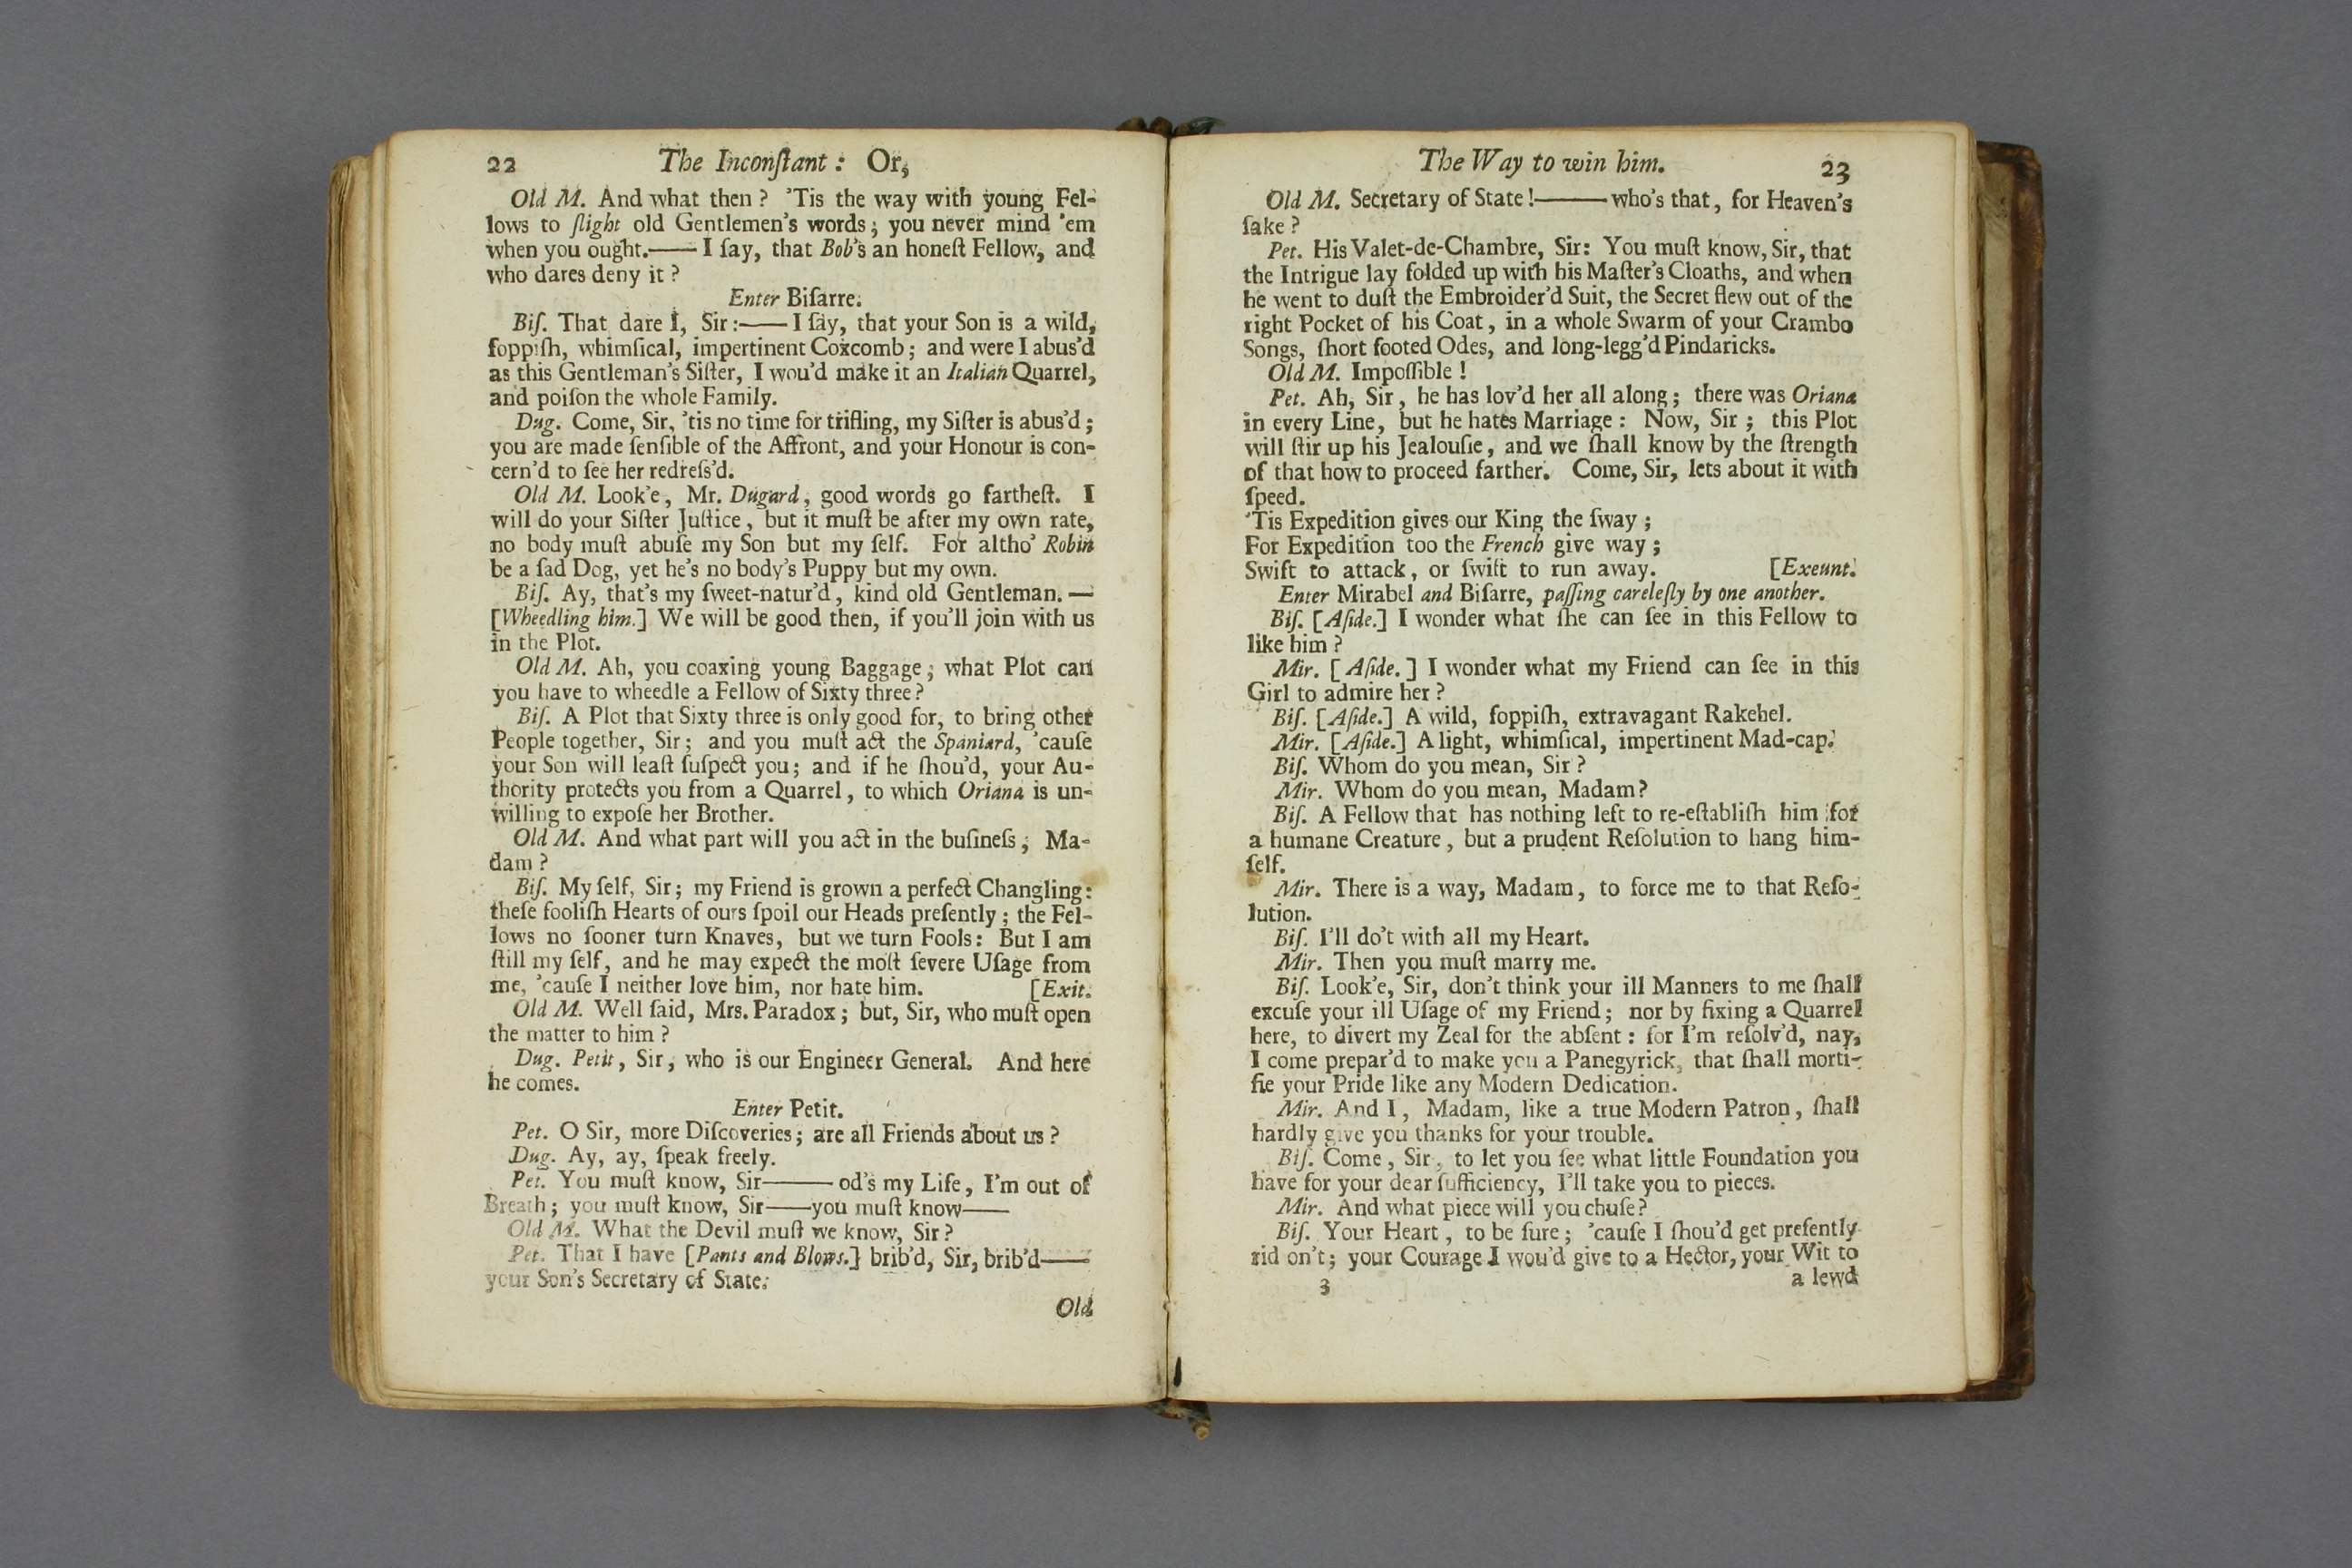 22 The Inconſtant: Or,
Old M. And what then? 'Tis the way with young Fel-
lows to ſlight old Gentlemen's words; you never mind 'em
when you ought.—— I ſay, that Bob's an honeſt Fellow, and
who dares deny it?
Enter Biſarre.
Biſ. That dare I, Sir:——I ſay, that your Son is a wild,
foppiſh, whimſical, impertinent Coxcomb; and were I abus'd
as this Gentleman's Siſter, I wou'd make it an Italian Quarrel,
and poiſon the whole Family.
Dug. Come, Sir, 'tis no time for trifling, my Siſter is abus'd;
you are made ſenſible of the Affront, and your Honour is con-
cern'd to ſee her redreſs'd.
Old M. Look'e, Mr. Dugard, good words go fartheſt. I
will do your Siſter Juſtice, but it muſt be after my own rate,
no body muſt abuſe my Son but my ſelf. For altho' Robin
be a ſad Dog, yet he's no body's Puppy but my own.
Biſ. Ay, that's my ſweet-natur'd, kind old Gentleman.—
[Wheedling him.] We will be good then, if you'll join with us
in the Plot.
Old M. Ah, you coaxing young Baggage; what Plot can
you have to wheedle a Fellow of Sixty three?
Biſ. A Plot that Sixty three is only good for, to bring other
People together, Sir; and you muſt act the Spaniard, 'cauſe
your Son will leaſt ſuſpect you; and if he ſhou'd, your Au-
thority protects you from a Quarrel, to which Oriana is un-
willing to expoſe her Brother.
Old M. And what part will you act in the buſineſs, Ma-
dam?
Biſ. My ſelf, Sir; my Friend is grown a perfect Changling:
theſe fooliſh Hearts of ours ſpoil our Heads preſently; the Fel-
lows no ſooner turn Knaves, but we turn Fools: But I am
ſtill my ſelf, and he may expect the moſt ſevere Uſage from
me, 'cauſe I neither love him, nor hate him. [Exit.
Old M. Well ſaid, Mrs. Paradox; but, Sir, who muſt open
the matter to him?
Dug. Petit, Sir, who is our Engineer General. And here
he comes.
Enter Petit.
Pet. O Sir, more Diſcoveries; are all Friends about us?
Dug. Ay, ay, ſpeak freely.
Pet. You muſt know, Sir——— od's my Life, I'm out of
Breath; you muſt know, Sir——you muſt know——
Old M. What the Devil muſt we know, Sir?
Pet. That I have [Pants and Blows.] brib'd, Sir, brib'd——
your Son's Secretary of State.
Old
The Way to win him. 23
Old M. Secretary of State!———who's that, for Heaven's
ſake?
Pet. His Valet-de-Chambre, Sir: You muſt know, Sir, that
the Intrigue lay folded up with his Maſter's Cloaths, and when
he went to duſt the Embroider'd Suit, the Secret flew out of the
right Pocket of his Coat, in a whole Swarm of your Crambo
Songs, ſhort footed Odes, and long-legg'd Pindaricks.
Old M. Impoſſible!
Pet. Ah, Sir, he has lov'd her all along; there was Oriana
in every Line, but he hates Marriage: Now, Sir; this Plot
will ſtir up his Jealouſie, and we ſhall know by the ſtrength
of that how to proceed farther. Come, Sir, lets about it with
ſpeed.
'Tis Expedition gives our King the ſway;
For Expedition too the French give way;
Swift to attack, or ſwift to run away. [Exeunt.
Enter Mirabel and Biſarre, paſſing careleſly by one another.
Biſ. [Aſide.] I wonder what ſhe can ſee in this Fellow to
like him?
Mir. [Aſide.] I wonder what my Friend can ſee in this
Girl to admire her?
Biſ. [Aſide.] A wild, foppiſh, extravagant Rakehel.
Mir. [Aſide.] A light, whimſical, impertinent Mad-cap.
Biſ. Whom do you mean, Sir?
Mir. Whom do you mean, Madam?
Biſ. A Fellow that has nothing left to re-eſtabliſh him for
a humane Creature, but a prudent Reſolution to hang him-
ſelf.
Mir. There is a way, Madam, to force me to that Reſo-
lution.
Biſ. I'll do't with all my Heart.
Mir. Then you muſt marry me.
Biſ. Look'e, Sir, don't think your ill Manners to me ſhall
excuſe your ill Uſage of my Friend; nor by fixing a Quarrel
here, to divert my Zeal for the abſent: for I'm reſolv'd, nay,
I come prepar'd to make you a Panegyrick, that ſhall morti-
fie your Pride like any Modern Dedication.
Mir. And I, Madam, like a true Modern Patron, ſhall
hardly give you thanks for your trouble.
Biſ. Come, Sir, to let you ſee what little Foundation you
have for your dear ſufficiency, I'll take you to pieces.
Mir. And what piece will you chuſe?
Biſ. Your Heart, to be ſure; 'cauſe I ſhou'd get preſently
rid on't; your Courage I wou'd give to a Hector, your Wit to
3 a lewd